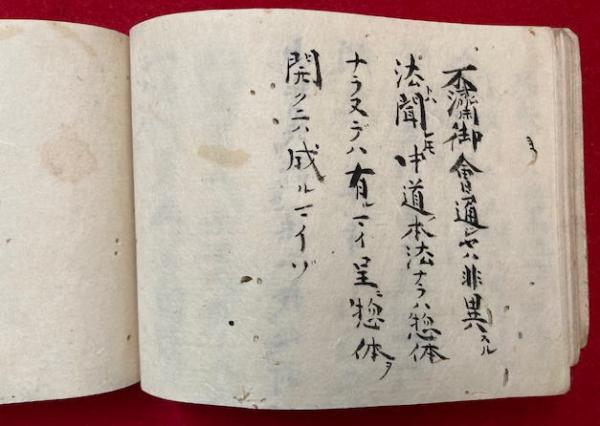 不御會通ハ非異スル
法聞トハ中道本法ナラハ惣体
ナラヌデハ有ルマイ呈ニ惣体ヲ
開クニハ成ルマイゾ